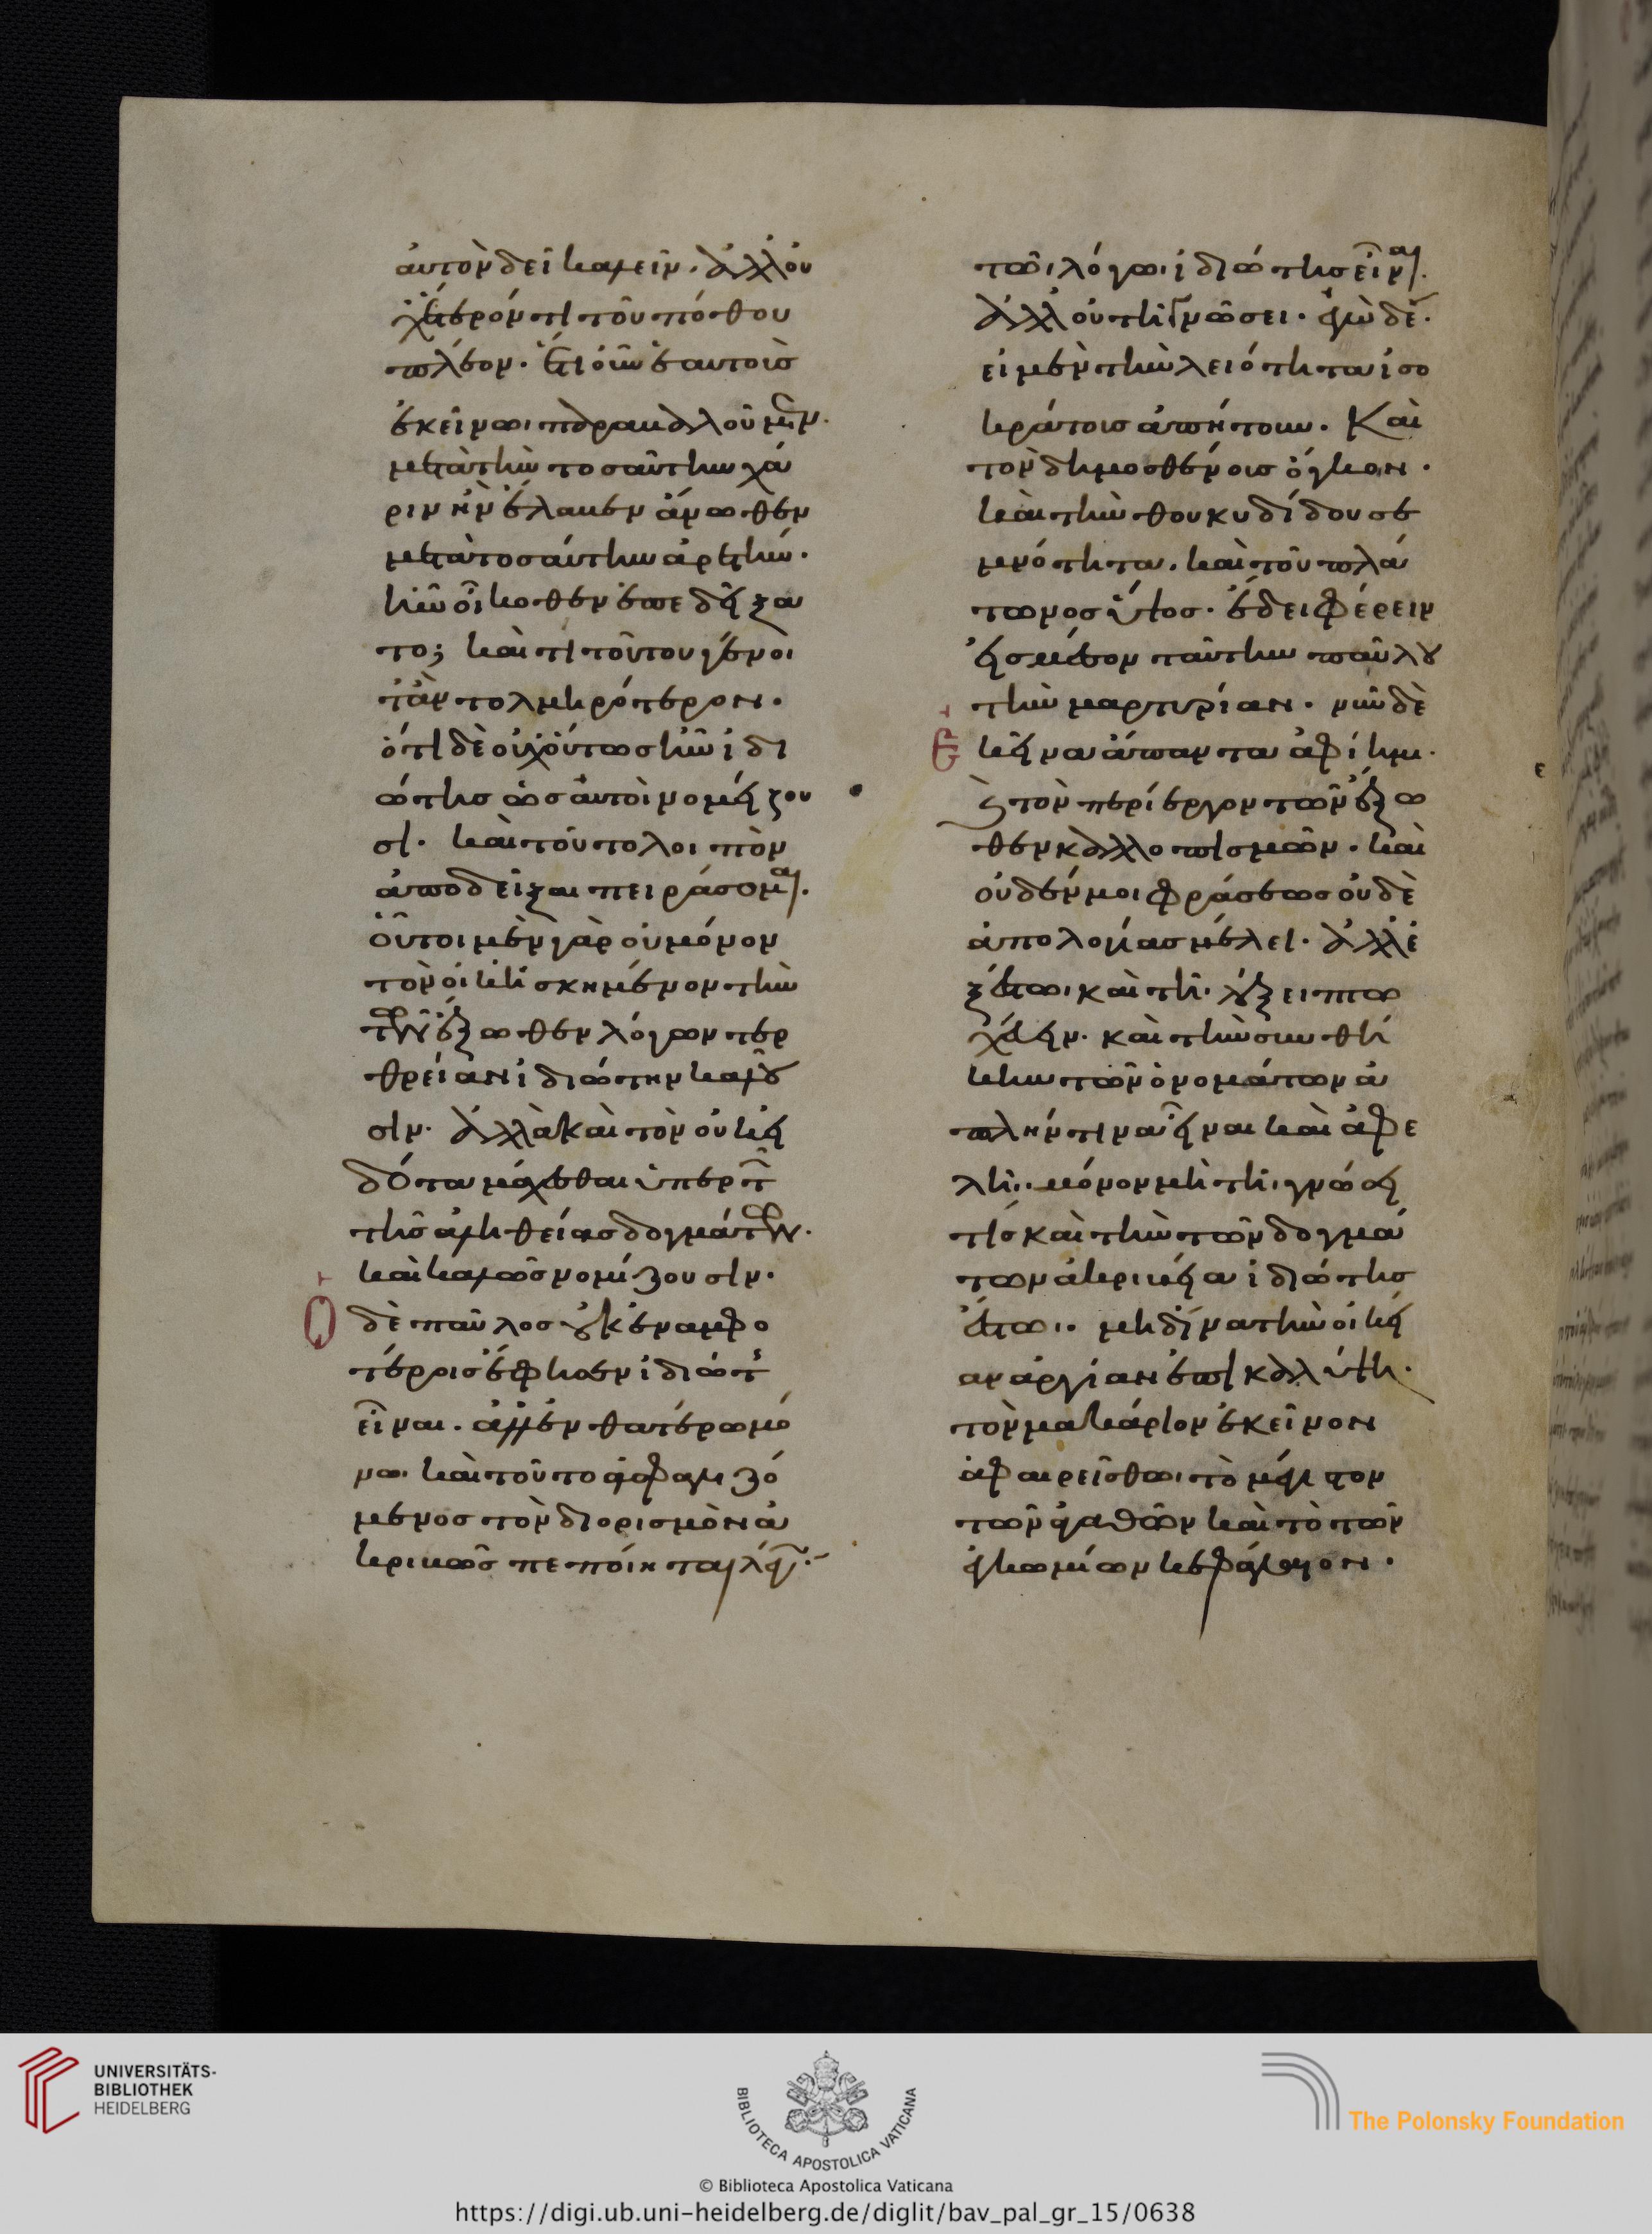 αὐτὸν δεῖ καλεῖν. ἀλλ' οὐ
χ ἕτερόν τι τοῦ πόθου
πλέον. ἔτι οὖν ἑαυτοὺς
ἐκείνωι παραβαλοῦμεν.
μετὰ τὴν τοσαύτην χά
ριν ἣν ἔλαβεν ἄνωθεν
μετὰ τοσαύτην ἀρετήν.
ἣν οἴκοθεν ἐπεδείξα
το; καὶ τί τούτου γένοι
τ' ἂν τολμηρότερον.
ὅτι δὲ οὐχ οὕτως ἦν ἰδι
ώτης ὡς αὐτοὶ νομίζου
σι. καὶ τοῦτο λοιπὸν
ἀποδεῖξαι πειράσομαι.
οὗτοι μὲν γὰρ οὐ μόνον
τὸν οὐκ ἠσκημένον τὴν
τῶν ἔξωθεν λόγων τερ
θρείαν ἰδιώτην καλοῦ
σιν. ἀλλὰ καὶ τὸν οὐκ εἰ
δότα μάχεσθαι ὑπὲρ τῶν
τῆς ἀληθείας δογμάτων.
καὶ καλῶς νομίζουσιν.
Ὁ δὲ παῦλος οὐκ ἐν ἀμφο
τέροις ἔφησεν ἰδιώτης
εἶναι. ἀλλ' ἐν θατέρω μό
νωι καὶ τοῦτο ἀσφαλιζό
μενος τὸν διορισμὸν ἀ
κριβῶς πεποίηται λέγων.
τῶι λόγωι ἰδιώτης εἶναι.
ἀλλ' οὐ τῆι γνώσει. ἐγὼ δὲ.
εἰ μὲν τὴν λειότητα ἰσο
κράτους ἀπήτουν. Καὶ
τὸν δημοσθένους ὄγκον.
καὶ τὴν θουκυδίδου σε
μνότητα. καὶ τοῦ πλά
τωνος ὕψος. ἔδει φέρειν
εἰς μέσον ταύτην παύλου
τὴν μαρτυρίαν. νῦν δὲ
Ἐκεῖνα ἅπαντα ἀφίημι.
καὶ τὸν περίεργον τῶν ἔξω
θεν καλλοπισμῶν. καὶ
οὐδέν μοι φράσεως οὐδὲ
ἀπολογίας μέλει. ἀλλ' ἐ
ξέστωι καὶ τῆι λέξει πτω
χεύειν. καὶ τὴν συνθή
κην τῶν ὀνομάτων ἁ
πλήν τινα εἶναι καὶ ἀφε
λῆ. μόνον μὴ τῆι γνώσει
τίς καὶ τὴν τῶν δογμά
των ἀκριβεία ἰδιώτης
ἔστωι. μηδ' ἵνα τὴν οἰκεί
αν ἀργίαν ἐπικαλύψη.
τὸν μακάριον ἐκεῖνον
ἀφαιρείσθωι τὸ μέγιστον
τῶν ἀγαθῶν καὶ τὸ τῶν
ἐγκωμίων κεφάλαιον.
UNIVERSITÄTS-
BIBLIOTHEK
HEIDELBERG
BIBLIOTECA APOSTOLICA VATICANA
The Polonsky Foundation
© Biblioteca Apostolica Vaticana
https://digi.ub.uni-heidelberg.de/diglit/bav_pal_gr_15/0638